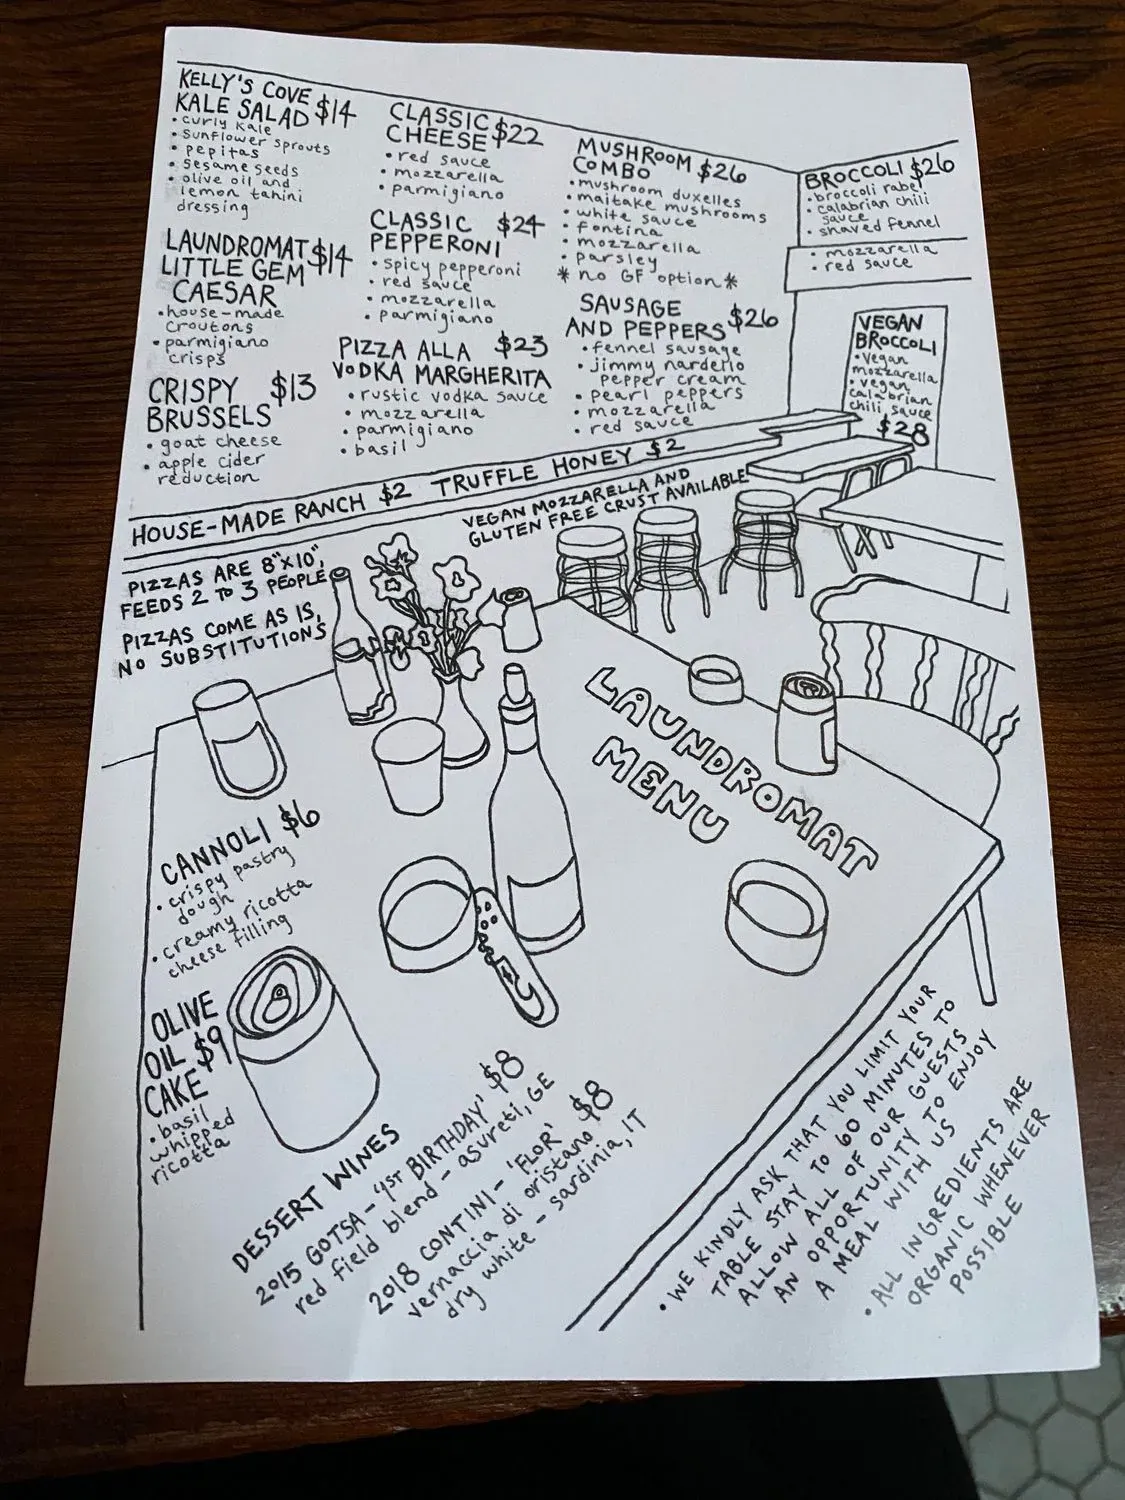 KELLY'S COVE
KALE SALAD $14
• curly kale
• sunflower sprouts
• pepitas
• sesame seeds
• olive oil and
lemon tahini
dressing
LAUNDROMAT $14
LITTLE GEM
CAESAR
• house-made
croutons
• parmigiano
crisps
CRISPY $13
BRUSSELS
• goat cheese
• apple cider
reduction
CLASSIC $22
CHEESE
• red sauce
• mozzarella
• parmigiano
CLASSIC $24
PEPPERONI
• spicy pepperoni
• red sauce
• mozzarella
• parmigiano
PIZZA ALLA $23
VODKA MARGHERITA
• rustic vodka sauce
• mozzarella
• parmigiano
• basil
MUSHROOM $26
COMBO
• mushroom duxelles
• maitake mushrooms
• white sauce
• fontina
• mozzarella
• parsley
* no GF option *
SAUSAGE $26
AND PEPPERS
• fennel sausage
• jimmy nardello
pepper cream
• pearl peppers
• mozzarella
• red sauce
BROCCOLI $26
• broccoli rabe
• calabrian chili
sauce
• shaved fennel
• mozzarella
• red sauce
VEGAN
BROCCOLI
• vegan
mozzarella
• vegan
calabrian
chili sauce
$28
HOUSE-MADE RANCH $2 TRUFFLE HONEY $2
VEGAN MOZZARELLA AND
GLUTEN FREE CRUST AVAILABLE
PIZZAS ARE 8"X10",
FEEDS 2 TO 3 PEOPLE
PIZZAS COME AS IS,
NO SUBSTITUTIONS
LAUNDROMAT
MENU
CANNOLI $6
• crispy pastry
dough
• creamy ricotta
cheese filling
OLIVE
OIL $9
CAKE
• basil
whipped
ricotta
DESSERT WINES
2015 GOTSA - '41ST BIRTHDAY' $8
red field blend - asureti, GE
2018 CONTINI - 'FLOR' $8
vernaccia di oristano
dry white - sardinia, IT
• WE KINDLY ASK THAT YOU LIMIT YOUR
TABLE STAY TO 60 MINUTES TO
ALLOW ALL OF OUR GUESTS
AN OPPORTUNITY TO ENJOY
A MEAL WITH US
• ALL INGREDIENTS ARE
ORGANIC WHENEVER
POSSIBLE